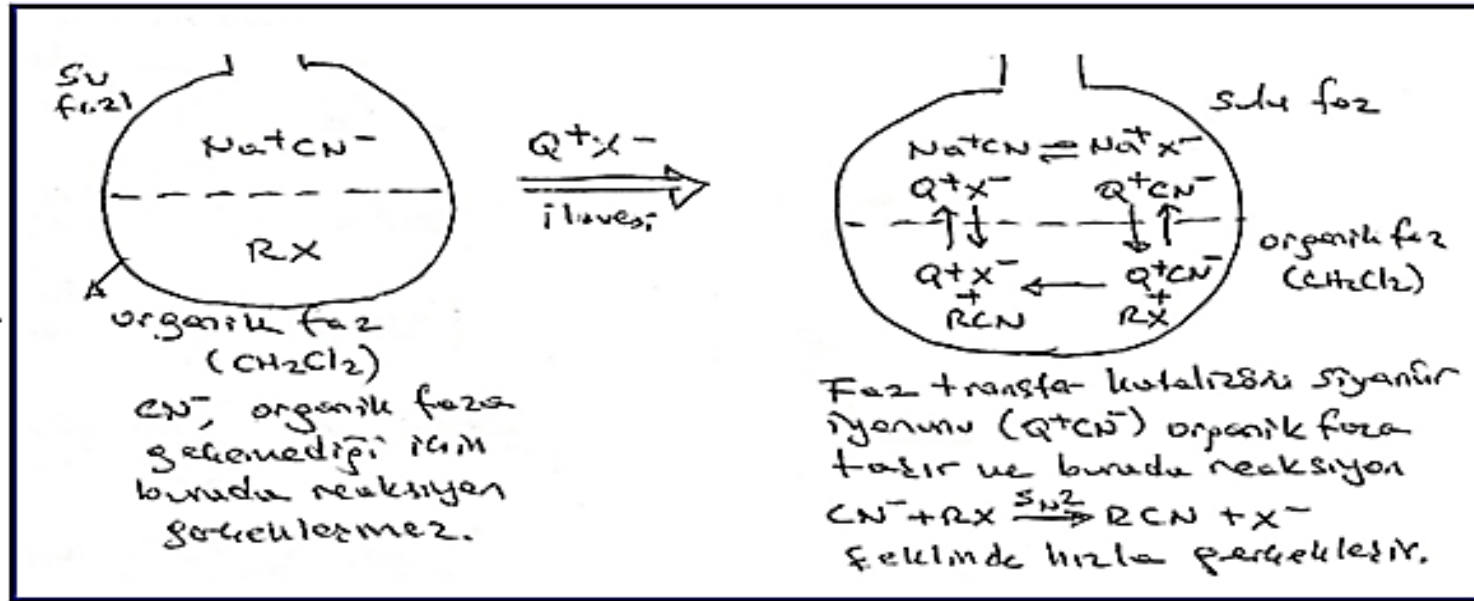 Su
fazı
Na⁺CN⁻
RX
organik faz
(CH₂Cl₂)
CN⁻, organik faza
geçemediği için
burada reaksiyon
gerçekleşmez.
Q⁺X⁻
ilavesi
sulu faz
Na⁺CN ⇌ Na⁺X⁻
Q⁺X⁻ Q⁺CN⁻
Q⁺X⁻ ← Q⁺CN⁻
+ +
RCN RX
organik faz
(CH₂Cl₂)
Faz transfer katalizörü siyanür
iyonunu (Q⁺CN⁻) organik faza
taşır ve burada reaksiyon
CN⁻+RX →SN2 RCN + X⁻
şeklinde hızla gerçekleşir.